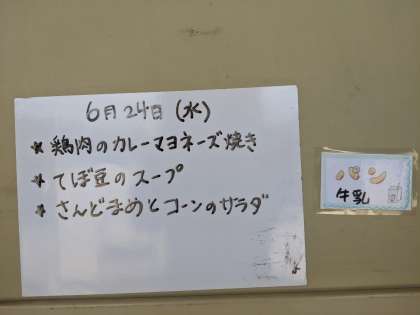 6月24日(水)
* 鶏肉のカレーマヨネーズ焼き
* てぼ豆のスープ
* さんどまめとコーンのサラダ
パン
牛乳